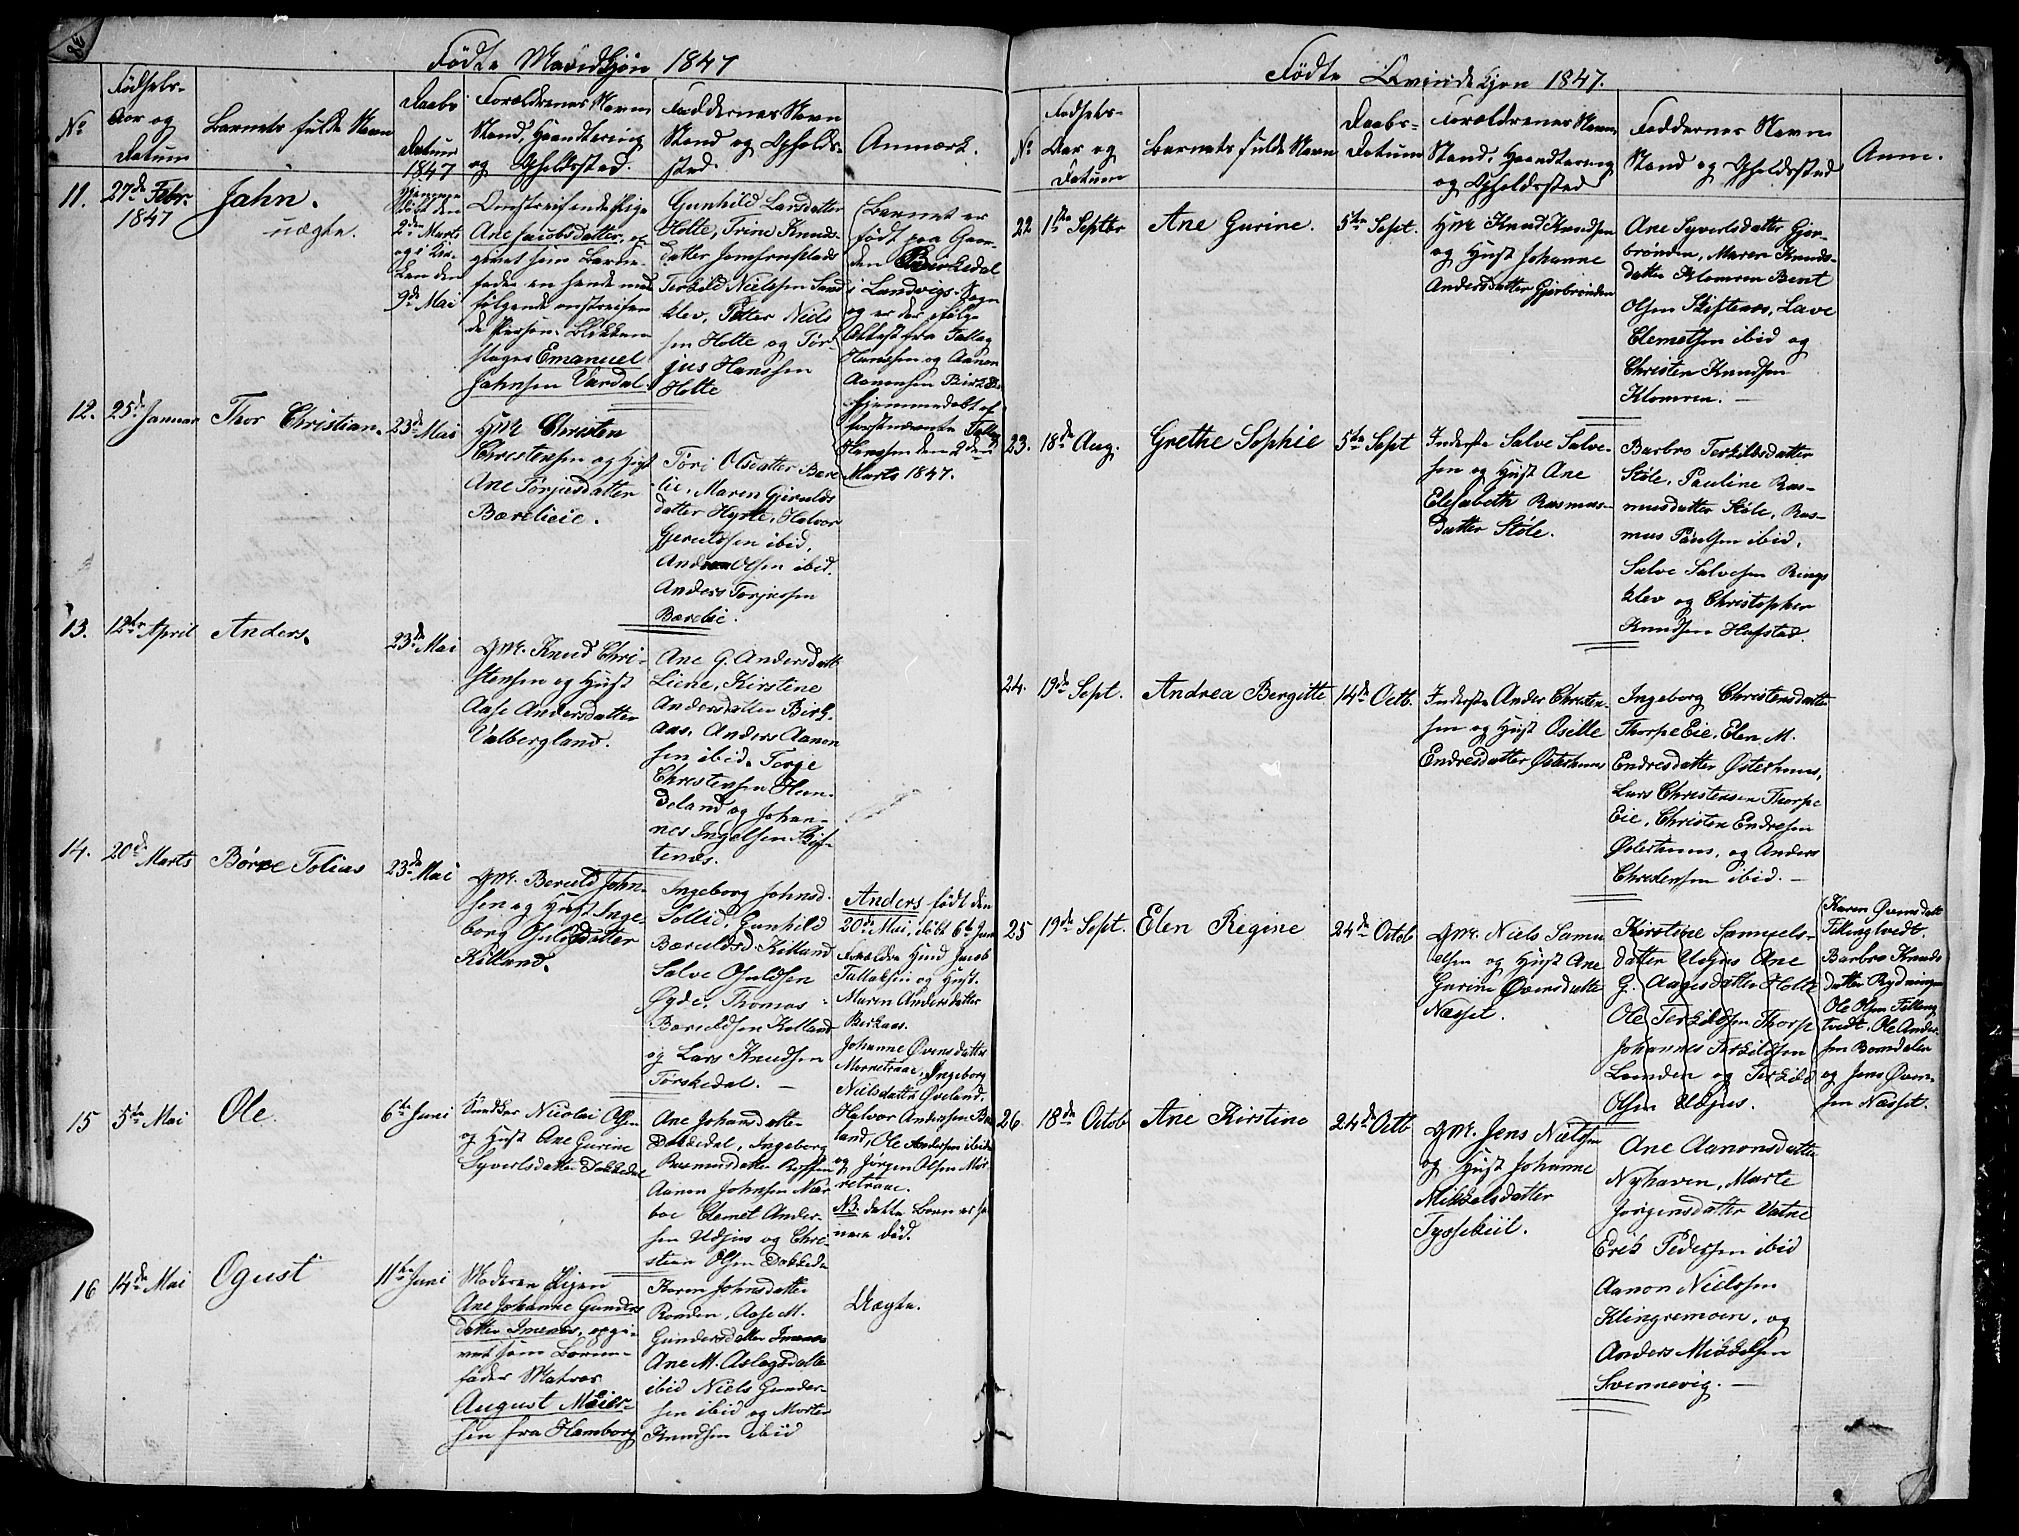 Fødte Mandkjøn 1847
No
Fødsels-
Aar og
Datum
Barnets fulde Navn
Daabs
Datum
1847
Forældrenes Navn
Stand, Haandtering
og Opholdssted.
Faddernes Navn
Stand og Opholds-
sted
Anmærk.
11.
27de Febr.
1847
Jahn.
uægte.
den
2den Marts
og i Kir-
ken den
9de Mai
Omstreifende Pige
Ane Jacobsdatter, op-
givet som Barne-
fader en hende med
følgende omstreifen
de Person, Blikken-
slager Emanuel
Jahnsen Vardal.
Gunhild Larsdatter
Holte, Trine Knuds-
datter
Terkild Nielssen Sand
klev, Petter Niels
sen Holte og Tør-
jus Hanssen
Holte
Barnet er
født paa Gaar-
den Birkedal
i Landvigs Sogn
og er der ifølge
Attest fra Talleg
Hanssen og Aanon
Aanonsen Birkeda
hjemmedøbt af
Hanssen den 2den
Marts 1847.
12.
25de Januar
Thor Christian.
23de Mai
Gm. Christen
Christensen og Hust
Ane Tørjusdatter
Bærelieie.
Tøri Olsdatter Bære
lie, Maren Gjeruldsdatter
Hyrte, Halvor
Gjeruldsen ibid,
Andreas Olsen ibid.
Anders Torjusen
Bærelie.
13.
12te April
Anders.
23de Mai
Gm. Knud Chri-
stensen og Hust
Aase Andersdatter
Valbergland.
Ane G. Andersdatt
Liene, Kirstine
Andersdatter Birk-
aas, Anders Aanon
sen ibid. Terge
Christensen Hean-
deland og Johan-
nes Ingelsen Skif-
tenæs.
14.
20de Marts
Børre Tobias
23de Mai
Gm. Beruld John-
sen og Hust Inge-
borg Osuldsdatter
Killand.
Ingeborg Johnsd.
Sollid, Gunhild
Bæruldsd. Killand
Salve Osuldsen
Øyde, Thomas
Bæruldsen Killand
og Lars Knudsen
Torskedal. —
Anders født den
20de Mai, døbt 6te Juni
Forældre Hmd Jacob
Tallaksen og Hust.
Maren Andersdatter
Birkaas.
Johanne Øvensdatter
Morretraae, Ingeborg
Nielsdatter Øveland,
Halvor Andersen Bre
land, Ole Andersen ibid
og Jørgen Olsen Mor
retraae.
NB. dette Barn er se
nere død.
15
5te Mai
Ole.
6te Juni
Nicolai Olsen
og Hust Ane Gurine
Syverlsdatter Dokkedal
Ane Johansdatter
Dokkedal, Ingeborg
Rasmusdatter
Aanon Johnsen Nær
boe Clemet Ander-
sen Udjus og Chri-
stian Olsen Dokkeda
16
14de Mai
Ogust
11te Juni
Moderen Pigen
Ane Johanne Gunders
datter Imenes, opgi-
vet som Barne-
fader Matros
August Meier-
sen fra Hamborg
Karen Johnsdatter
Ronden, Aase M.
Gundersdatter Imenes
Ane M. Aslagsdatter
ibid Niels Gunder-
sen ibid og Morten
Knudsen ibid
Uægte.
Fødte Qvindekjøn 1847.
No
Fødsels-
Aar og
Datum
Barnets fulde Navn
Daabs-
Datum
Forældrenes Navn
Stand, Haandtering
og Opholdssted
Faddernes Navn
Stand og Opholdssted
Anm.
22
1ste Septbr
Ane Gurine.
5te Sept.
Gm Knud Knudsen
og Hust Johanne
Andersdatter Gjærbrønden
Ane Syverlsdatter Gjær-
brønden, Maren Knuds-
datter Klomren Bent
Olsen Skiftenæs, Lave
Clemetsen ibid og
Christen Knudsen
Klomren. —
23.
18de Aug.
Grethe Sophie
5te Sept
Inderste Salve Salve-
sen og Hust Ane
Elesabeth Rasmus-
datter Støle.
Barbro Terkildsdatter
Støle, Pauline Ras-
musdatter Støle, Ras-
mus Paulsen ibid,
Salve Salvesen Rings
klev og Christopher
Knudsen Hafstad.
24.
19de Sept.
Andrea Bergitte
14de Octb.
Inderste Ander Christen-
sen og Hust Oselle
Endresdatter Østerhuus
Ingeborg Christensdatter
Thorpe Eie, Elen M.
Endresdatter Østerhuus,
Lars Christensen Thorpe
Eie, Christen Endresen
Østerhuus, og Anders
Christensen ibid. —
25
19de Sept.
Elen Regine
24de Octob
Gm. Niels Samu
elsen og Hust Ane
Gurine Øvensdatter
Næsset.
Kirstine Samuels-
datter Udjus Ane
G. Aagesdatter Holte
Ole Terkildsen Thorpe
Johannes Terkildsen
Lunden og Terkild
Olsen Udjus.
Karen Øvensdatt
Fillingtvedt.
Barbro Knuds
datter Rydningen
Ole Olsen Filling
tvedt, Ole Ander-
sen Bomdalen
og Jens Øven-
sen Næsset.
26
18de Octob
Ane Kirstine
24de Octb
Gm. Jens Nielsen
og Hust Johanne
Mikkelsdatter
Tyssekiil.
Ane Aanonsdatter
Nyhaven, Marte
Jørgensdatter Vatne
Erik Pedersen ibid
Aanon Nielssen
Klingremoen, og
Anders Mikkelsen
Svennevig. —